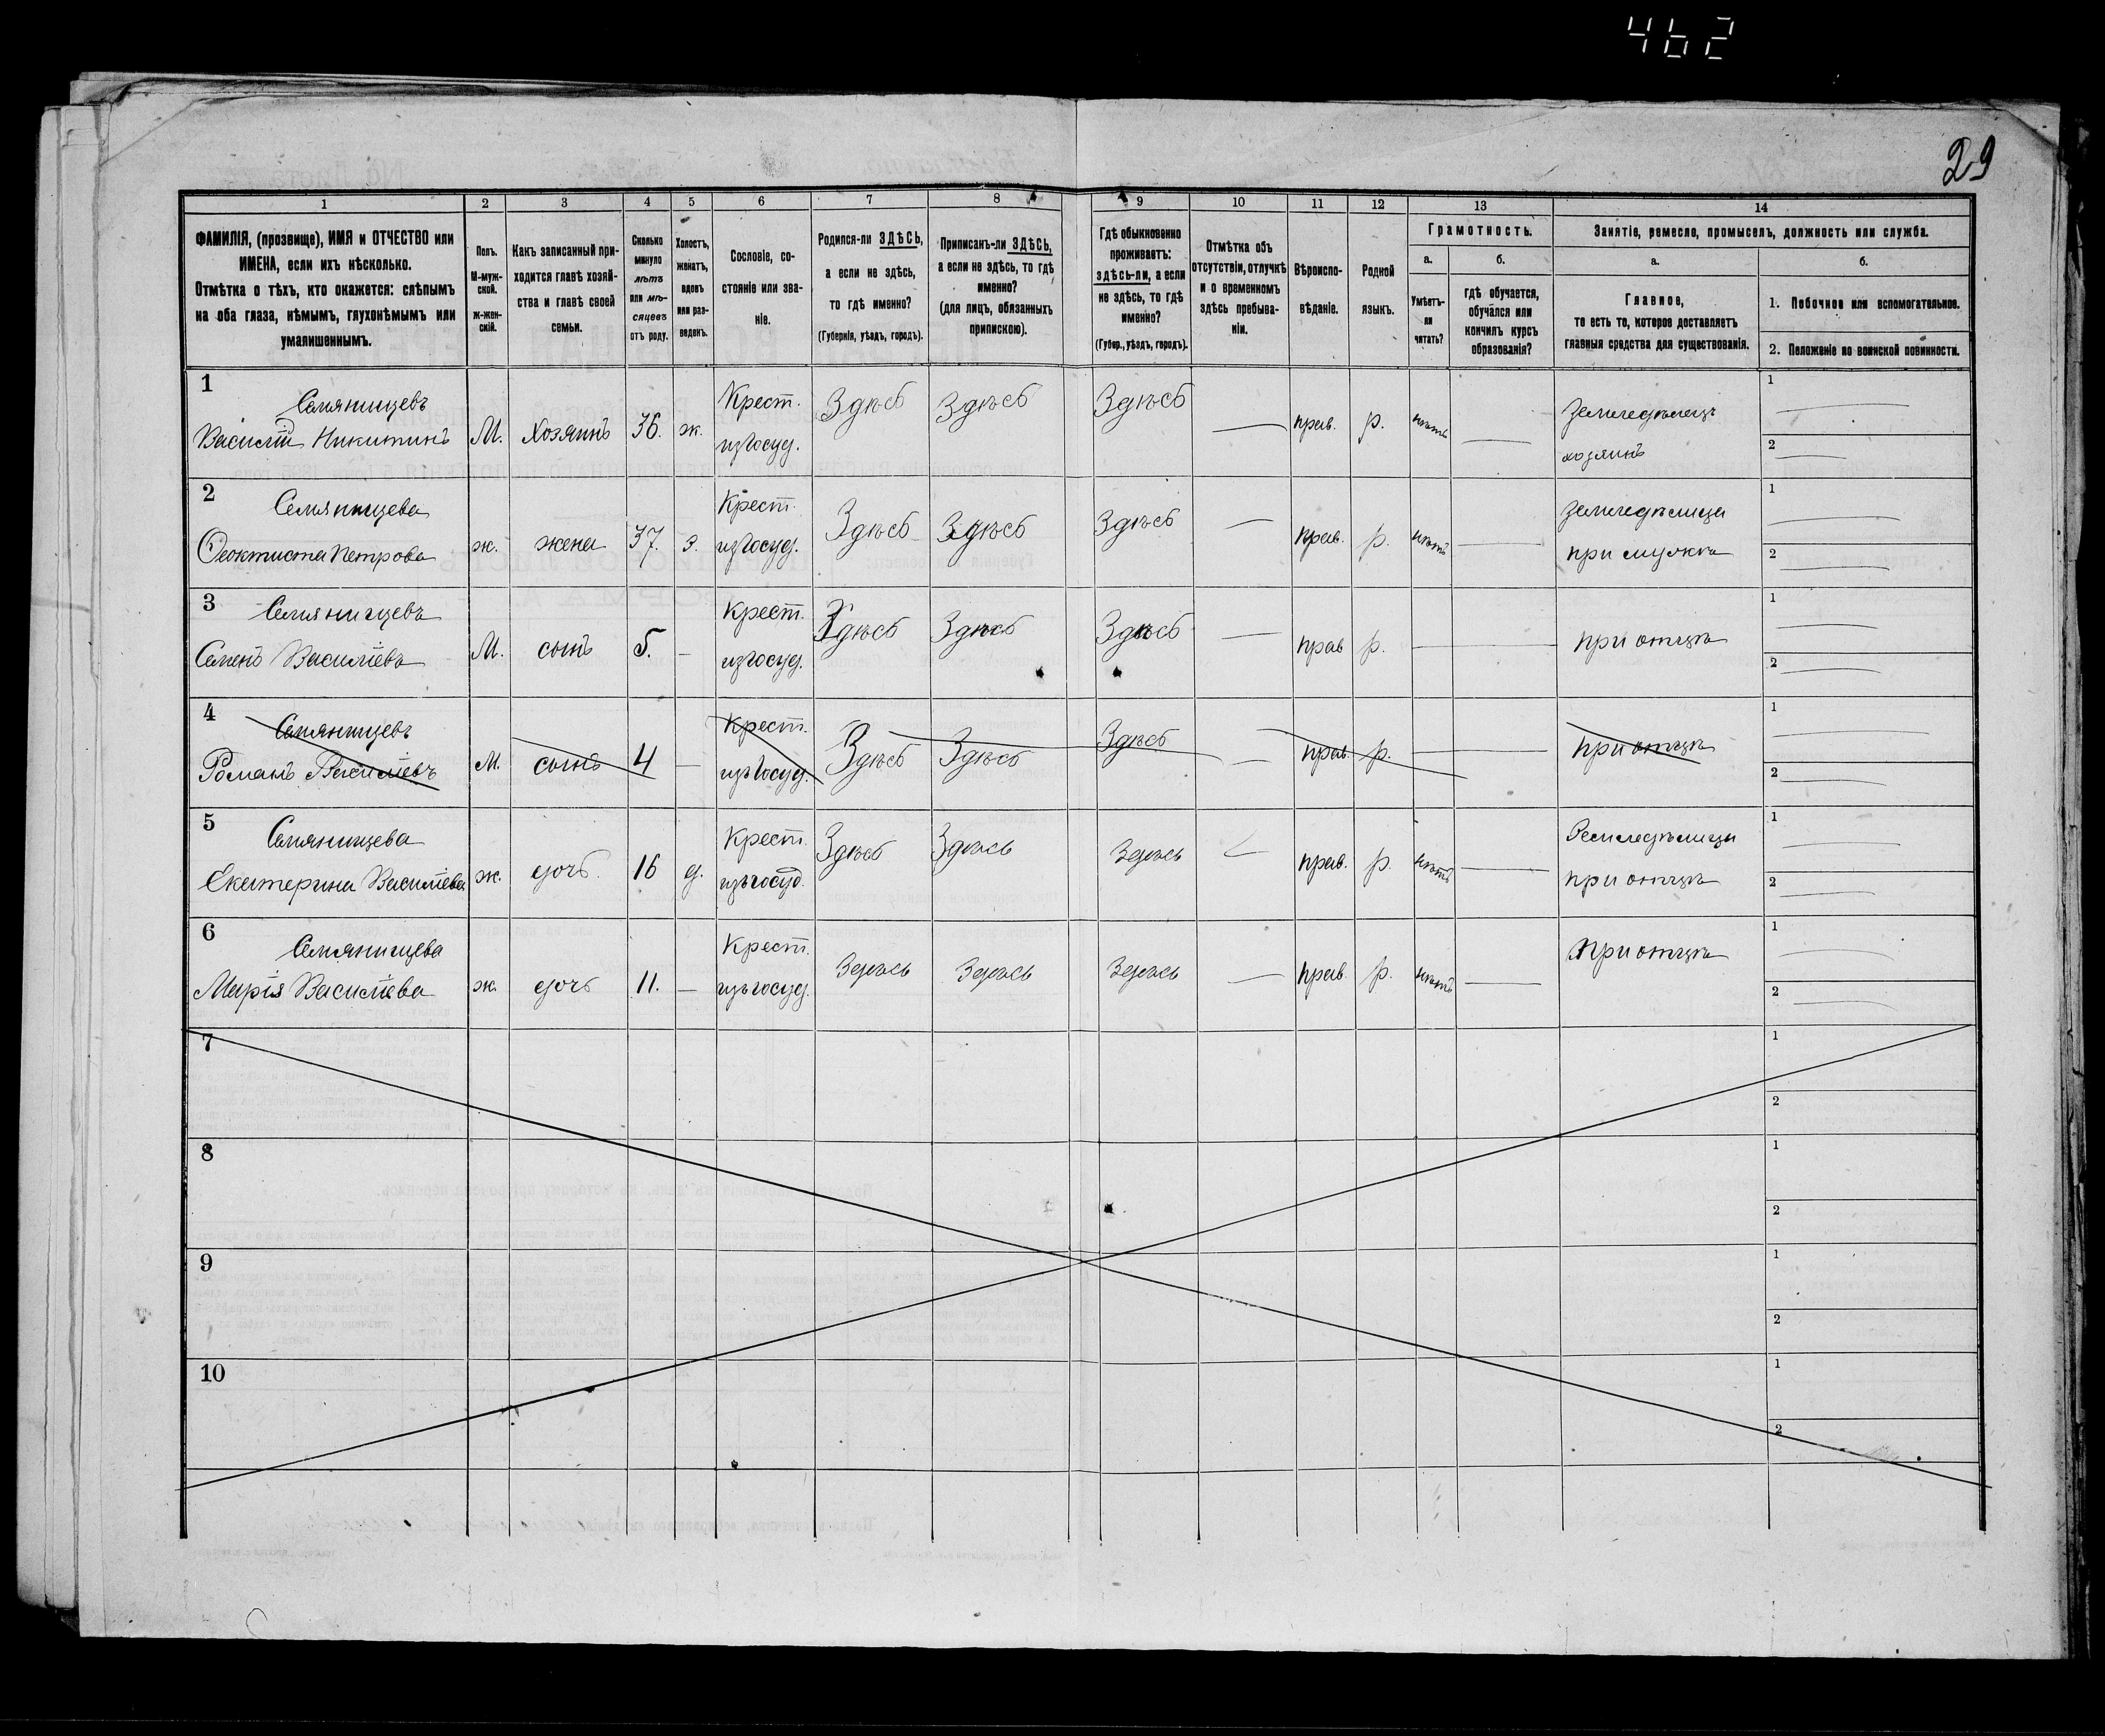 462
29
1 2 3 4 5 6 7 8 9 10 11 12 13 14
ФАМИЛІЯ, (прозвище), ИМЯ и ОТЧЕСТВО или
ИМЕНА, если ихъ нѣсколько.
Отмѣтка о тѣхъ, кто окажется: слѣпымъ
на оба глаза, нѣмымъ, глухонѣмымъ или
умалишеннымъ.
Полъ.
М-муж-
ской.
ж-жен-
скій.
Какъ записанный при-
ходится главѣ хозяй-
ства и главѣ своей
семьи.
Сколько
минуло
лѣтъ
или мѣ-
сяцевъ
отъ роду.
Холостъ,
женатъ,
вдовъ
или раз-
веденъ.
Сословіе, со-
стояніе или зва-
ніе.
Родился-ли ЗДѢСЬ,
а если не здѣсь,
то гдѣ именно?
(Губернія, уѣздъ, городъ).
Приписанъ-ли ЗДѢСЬ,
а если не здѣсь, то гдѣ
именно?
(для лицъ, обязанныхъ
припискою).
Гдѣ обыкновенно
проживаетъ:
здѣсь-ли, а если
не здѣсь, то гдѣ
именно?
(Губер., уѣздъ, городъ).
Отмѣтка объ
отсутствіи, отлучкѣ
и о временномъ
здѣсь пребыва-
ніи.
Вѣроиспо-
вѣданіе.
Родной
языкъ.
Грамотность.
а.
Умѣетъ-
ли
читать?
б.
гдѣ обучается,
обучался или
кончилъ курсъ
образованія?
Занятіе, ремесло, промыселъ, должность или служба.
а.
Главное,
то есть то, которое доставляетъ
главныя средства для существованія.
б.
1. Побочное или вспомогательное.
2. Положеніе по воинской повинности.
1
Семянищевъ
Василій Никитинъ
М. Хозяинъ 36. ж.
Крест.
изъ госуд.
Здѣсь Здѣсь Здѣсь — прав. р. нѣтъ —
Земледѣлецъ
хозяинъ
1
2
2
Семянищева
Ѳеоктиста Петрова
ж. жена 37. З.
Крест.
изъ госуд.
Здѣсь Здѣсь Здѣсь — прав. р. нѣтъ —
Земледѣлица
при мужѣ
1
2
3
Семянищевъ
Семенъ Василіевъ
М. сынъ 5. —
Крест.
изъ госуд.
Здѣсь Здѣсь Здѣсь — прав р. —
при отцѣ
1
2
4
Семянищевъ
Романъ Василіевъ
М. сынъ 4 —
Крест.
изъ госуд.
Здѣсь Здѣсь Здѣсь — прав. р. —
при отцѣ
1
2
5
Семянищева
Екатерина Василіева
ж. дочь. 16 д.
Крест.
изъ госуд.
Здѣсь Здѣсь Здѣсь — прав. р. нѣтъ —
Земледѣлица
при отцѣ
1
2
6
Семянищева
Марія Василіева
ж. дочь 11. —
Крест.
изъ госуд.
Здѣсь Здѣсь Здѣсь — прав. р. нѣтъ —
При отцѣ
1
2
7
1
2
8
1
2
9
1
2
10
1
2